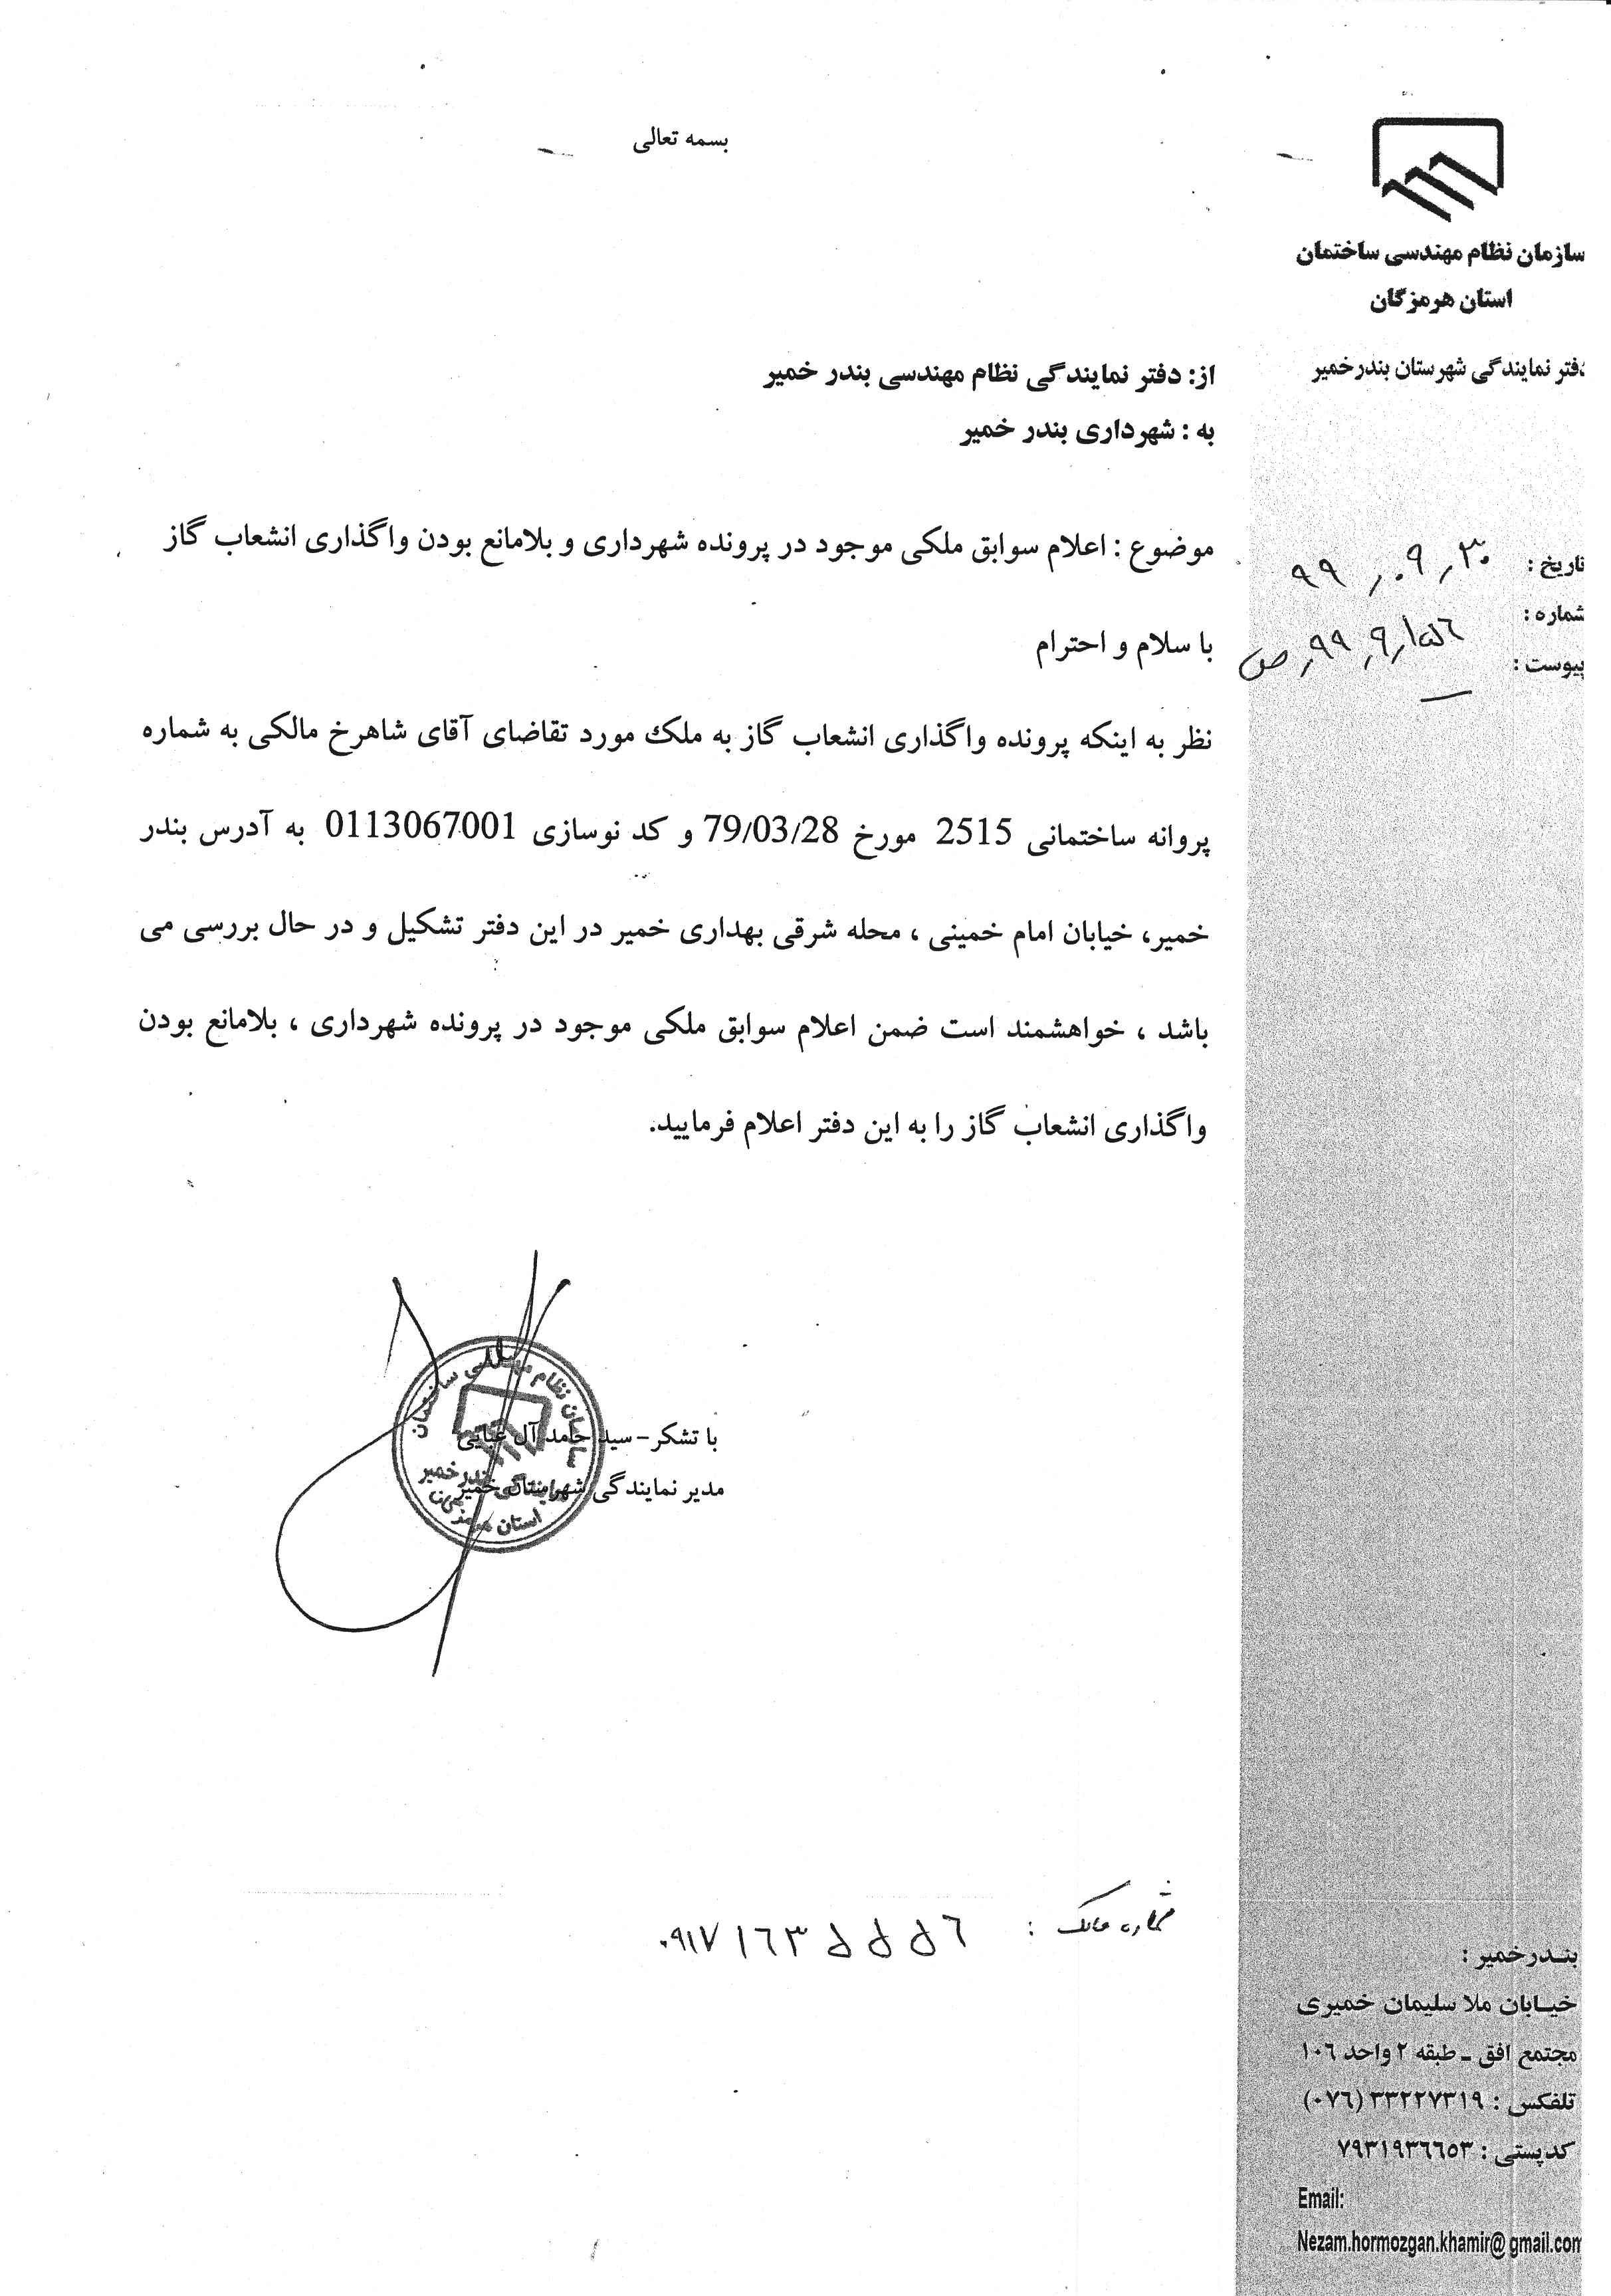 بسمه تعالی
سازمان نظام مهندسی ساختمان
استان هرمزگان
دفتر نمایندگی شهرستان بندرخمیر
تاریخ : ۹۹,۰۹,۳۰
شماره : ۱۵۶,۹,۹۹,ص
پیوست : —
از: دفتر نمایندگی نظام مهندسی بندر خمیر
به : شهرداری بندر خمیر
موضوع : اعلام سوابق ملکی موجود در پرونده شهرداری و بلامانع بودن واگذاری انشعاب گاز
با سلام و احترام
نظر به اینکه پرونده واگذاری انشعاب گاز به ملک مورد تقاضای آقای شاهرخ مالکی به شماره
پروانه ساختمانی 2515 مورخ 79/03/28 و کد نوسازی 0113067001 به آدرس بندر
خمیر، خیابان امام خمینی ، محله شرقی بهداری خمیر در این دفتر تشکیل و در حال بررسی می
باشد ، خواهشمند است ضمن اعلام سوابق ملکی موجود در پرونده شهرداری ، بلامانع بودن
واگذاری انشعاب گاز را به این دفتر اعلام فرمایید.
با تشکر – سید حامد آل عبایی
مدیر نمایندگی شهرستان خمیر
سازمان نظام مهندسی ساختمان
نمایندگی بندرخمیر
استان هرمزگان
شماره مالک : ۰۹۱۷۱۶۳۵۵۵۶
بندرخمیر :
خیابان ملا سلیمان خمیری
مجتمع افق ـ طبقه ۲ واحد ۱۰۶
تلفکس : ۳۳۲۲۷۳۱۹ (۰۷۶)
کدپستی : ۷۹۳۱۹۳۶۶۵۳
Email:
Nezam.hormozgan.khamir@gmail.com